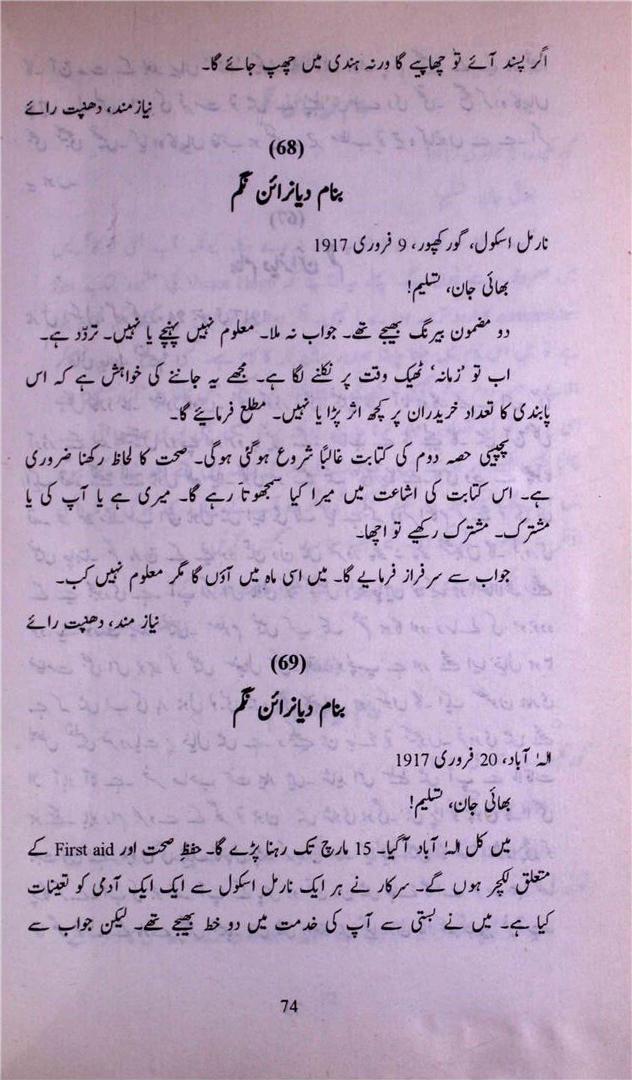 اگر پسند آئے تو چھاپیے گا ورنہ ہندی میں چھپ جائے گا۔
نیازمند، دھنپت رائے
(68)
بنام دیانرائن نگم
نارمل اسکول، گورکھپور، 9 فروری 1917
بھائی جان، تسلیم!
دو مضمون بیرنگ بھیجے تھے۔ جواب نہ ملا۔ معلوم نہیں پہنچے یا نہیں۔ تردّد ہے۔
اب تو ’زمانہ‘ ٹھیک وقت پر نکلنے لگا ہے۔ مجھے یہ جاننے کی خواہش ہے کہ اس
پابندی کا تعداد خریداران پر کچھ اثر پڑا یا نہیں۔ مطلع فرمائیے گا۔
پچیسی حصہ دوم کی کتابت غالباً شروع ہوگئی ہوگی۔ صحت کا لحاظ رکھنا ضروری
ہے۔ اس کتابت کی اشاعت میں میرا کیا سمجھوتا رہے گا۔ میری ہے یا آپ کی یا
مشترک۔ مشترک رکھیے تو اچھا۔
جواب سے سرفراز فرمایے گا۔ میں اسی ماہ میں آؤں گا مگر معلوم نہیں کب۔
نیاز مند، دھنپت رائے
(69)
بنام دیانرائن نگم
الہٰ آباد، 20 فروری 1917
بھائی جان، تسلیم!
میں کل الہٰ آباد آگیا۔ 15 مارچ تک رہنا پڑے گا۔ حفظِ صحت اور First aid کے
متعلق لکچر ہوں گے۔ سرکار نے ہر ایک نارمل اسکول سے ایک ایک آدمی کو تعینات
کیا ہے۔ میں نے بستی سے آپ کی خدمت میں دو خط بھیجے تھے۔ لیکن جواب سے
74